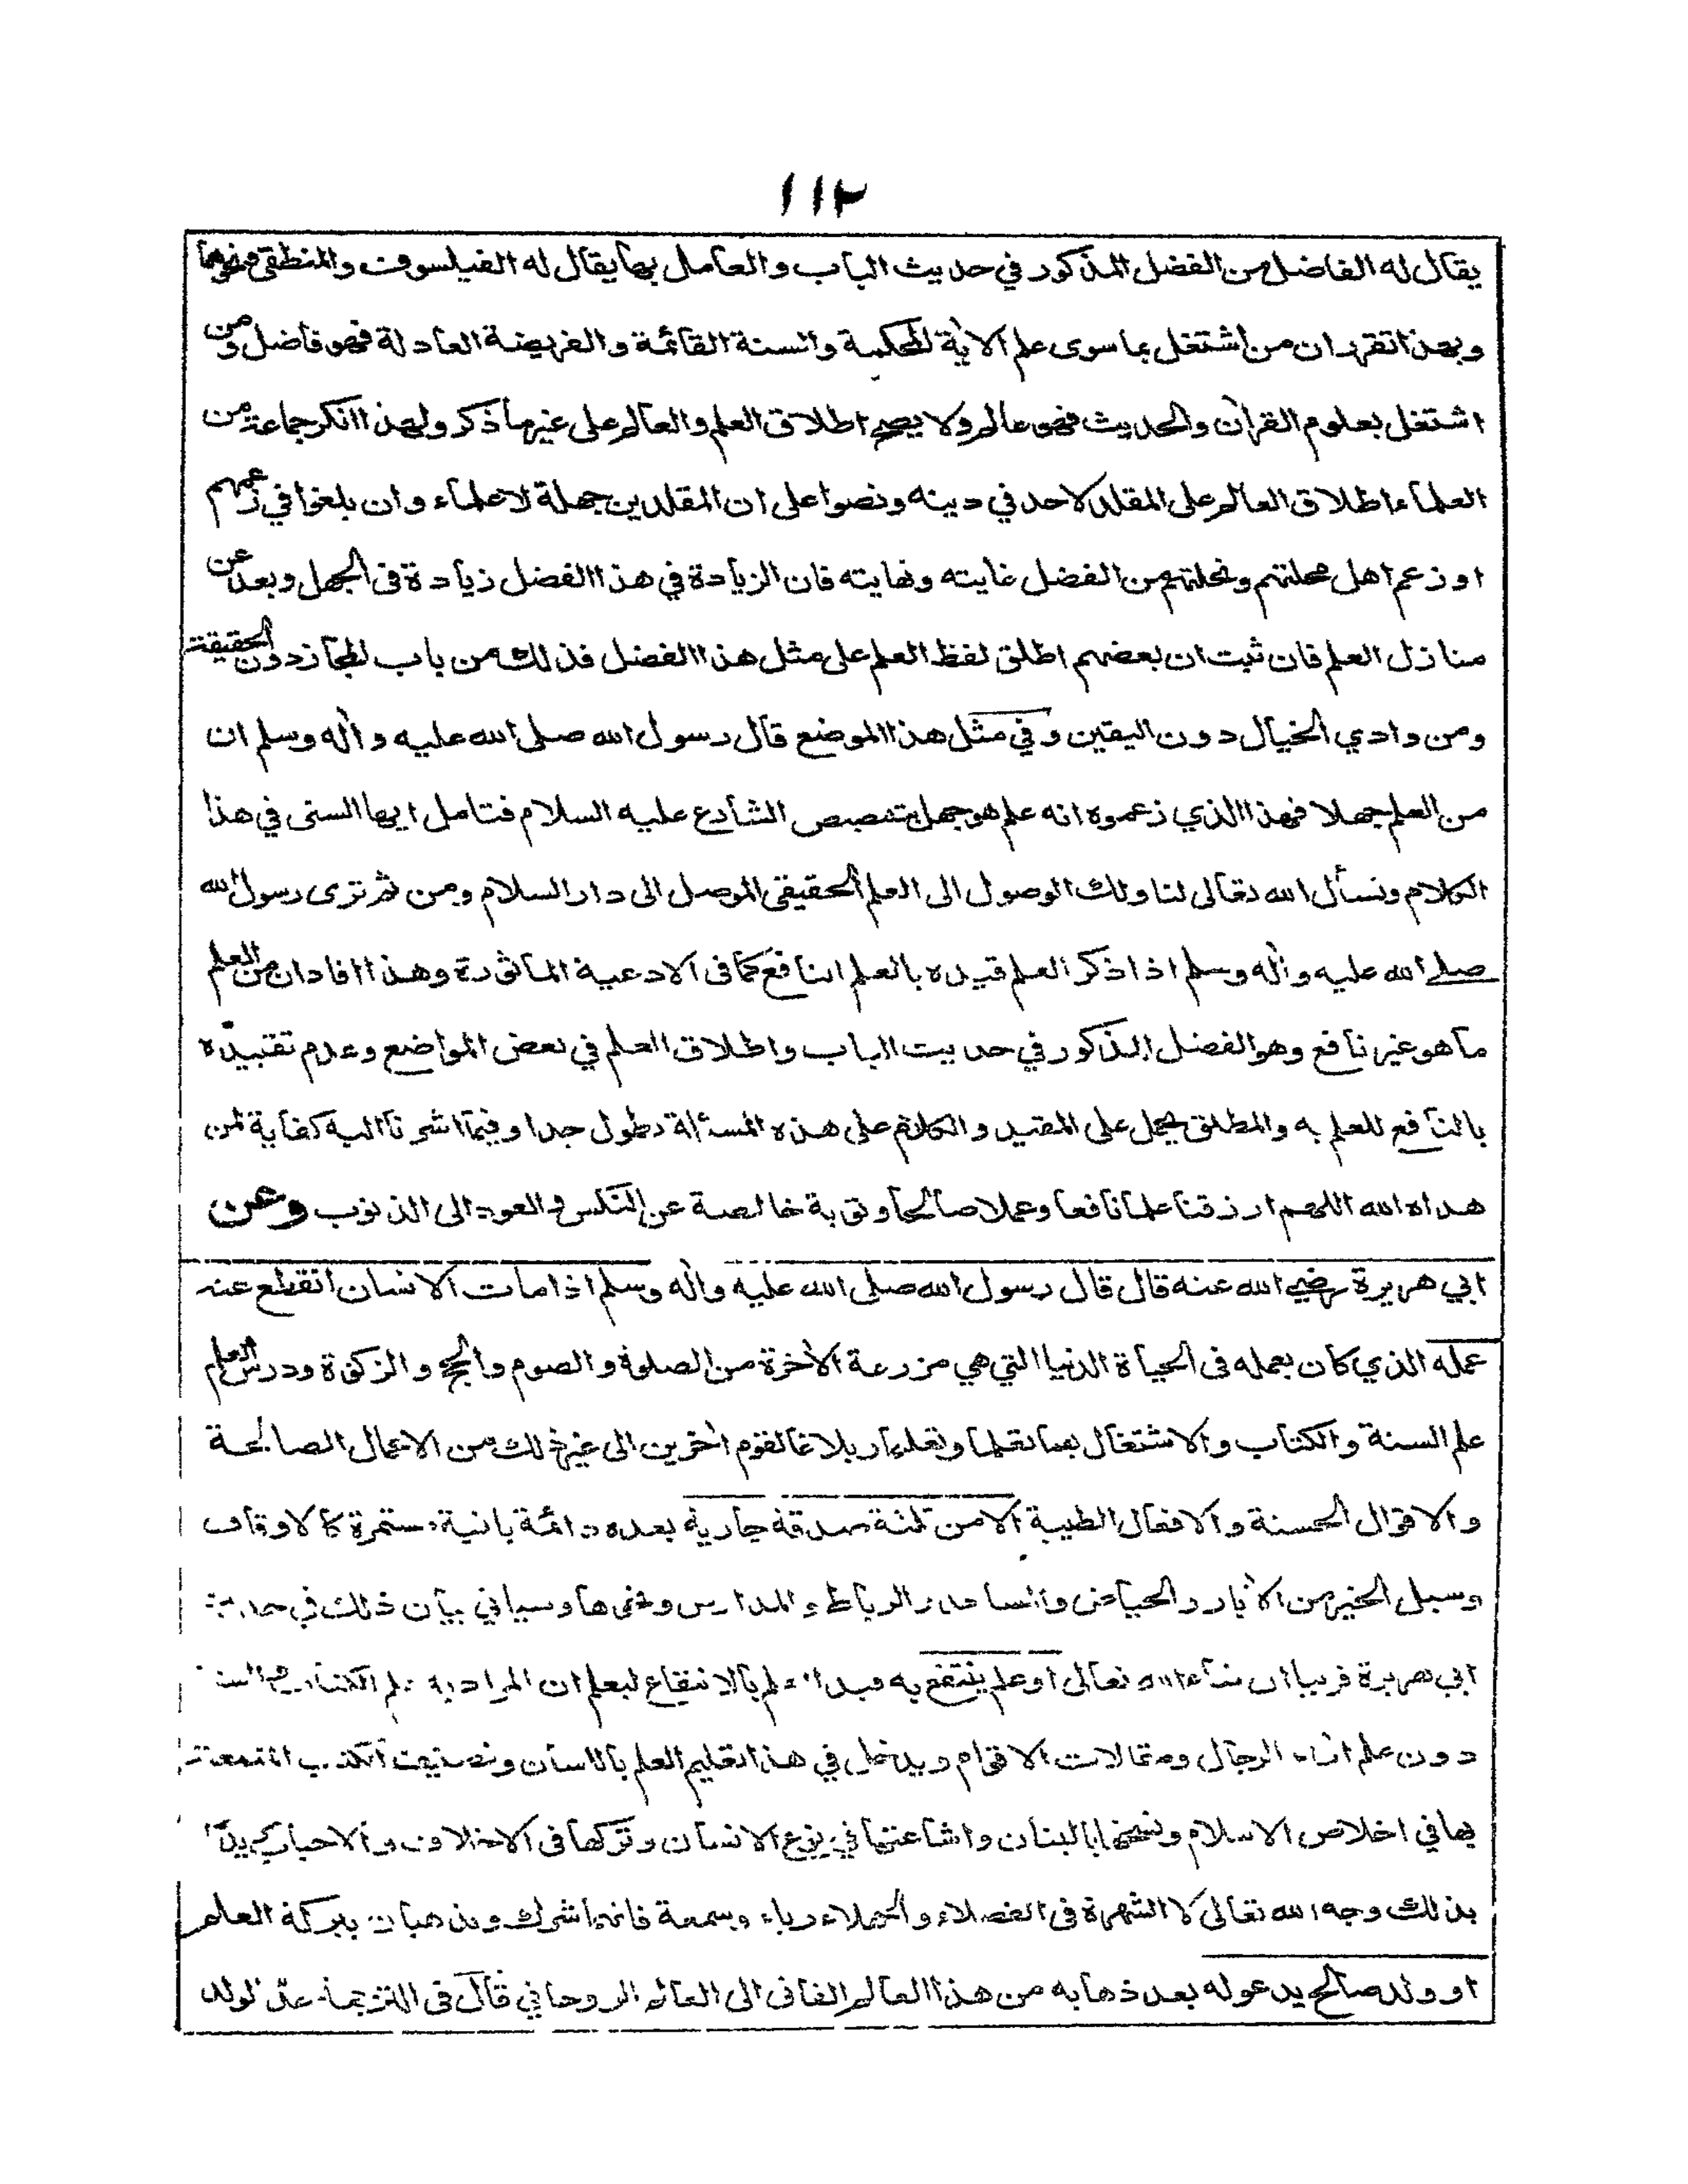 ١١٢
يقال له الفاضل من الفضل المذكور في حديث الباب والعامل بها يقال له الفيلسوف والمنطقي ونحوهما
وبهذا تقرر ان من اشتغل بما سوى علم الاية المحكمة والسنة القائمة والفريضة العادلة فهو فاضل ومن
اشتغل بعلوم القرآن والحديث فهو عالم ولا يصح اطلاق العلم والعالم على غير ما ذكر ولهذا انكر جماعة من
العلماء اطلاق العالم على المقلد لاحد في دينه ونصوا على ان المقلدين جهلة لا علماء وان بلغوا في زعمهم
او زعم اهل محلتهم ونحلتهم من الفضل غايته ونهايته فان الزيادة في هذا الفضل زيادة في الجهل وبعد عن
منازل العلم فان ثبت ان بعضهم اطلق لفظ العلم على مثل هذا الفضل فذلك من باب المجاز دون الحقيقة
ومن وادي الخيال دون اليقين وفي مثل هذا الموضع قال رسول الله صلى الله عليه وآله وسلم ان
من العلم جهلا فهذا الذي زعموه انه علم هو جهل بتنصيص الشارع عليه السلام فتامل ايها السني في هذا
الكلام ونسأل الله تعالى لنا ولك الوصول الى العلم الحقيقي الموصل الى دار السلام ومن ثم ترى رسول الله
صلى الله عليه وآله وسلم اذا ذكر العلم قيده بالعلم النافع كما في الادعية الماثورة وهذا افاد ان من العلم
ما هو غير نافع وهو الفضل المذكور في حديث الباب واطلاق العلم في بعض المواضع وعدم تقييده
بالنافع للعلم به والمطلق يحمل على المقيد والكلام على هذه المسئلة يطول جدا وفيما اشرنا اليه كفاية لمن
هداه الله اللهم ارزقنا علما نافعا وعملا صالحا وتوبة خالصة عن النكس والعود الى الذنوب وعن
ابي هريرة رضي الله عنه قال قال رسول الله صلى الله عليه وآله وسلم اذا مات الانسان انقطع عنه
عمله الذي كان يعمله في الحياة الدنيا التي هي مزرعة الآخرة من الصلوة والصوم والحج والزكوة ودرس العلم
علم السنة والكتاب والاشتغال بهما تعلما وتعليما وبلاغا لقوم آخرين الى غير ذلك من الاعمال الصالحة
والاقوال الحسنة والافعال الطيبة الا من ثلثة صدقة جارية بعده دائمة باقية مستمرة كالاوقاف
وسبل الخير من الآبار والحياض والمساجد والرباط والمدارس ونحوها وسياتي بيان ذلك في حديث
ابي هريرة قريبا ان شاء الله تعالى او علم ينتفع به قيد العلم بالانتفاع ليعلم ان المراد به علم الكتاب والسنة
دون علم اراء الرجال ومقالات الاقوام ويدخل في هذا تعليم العلم باللسان وتصنيف الكتب المنتفعة
بها في اخلاص الاسلام ونسخها بالبنان واشاعتها في نوع الانسان وتركها في الاخلاف والاحباب يريد
بذلك وجه الله تعالى لا الشهرة في الفضلاء والجهلاء رياء وسمعة فانهما شرك ويذهبان ببركة العلم
او ولد صالح يدعو له بعد ذهابه من هذا العالم الفاني الى العالم الروحاني قال في الترجمة عد الولد